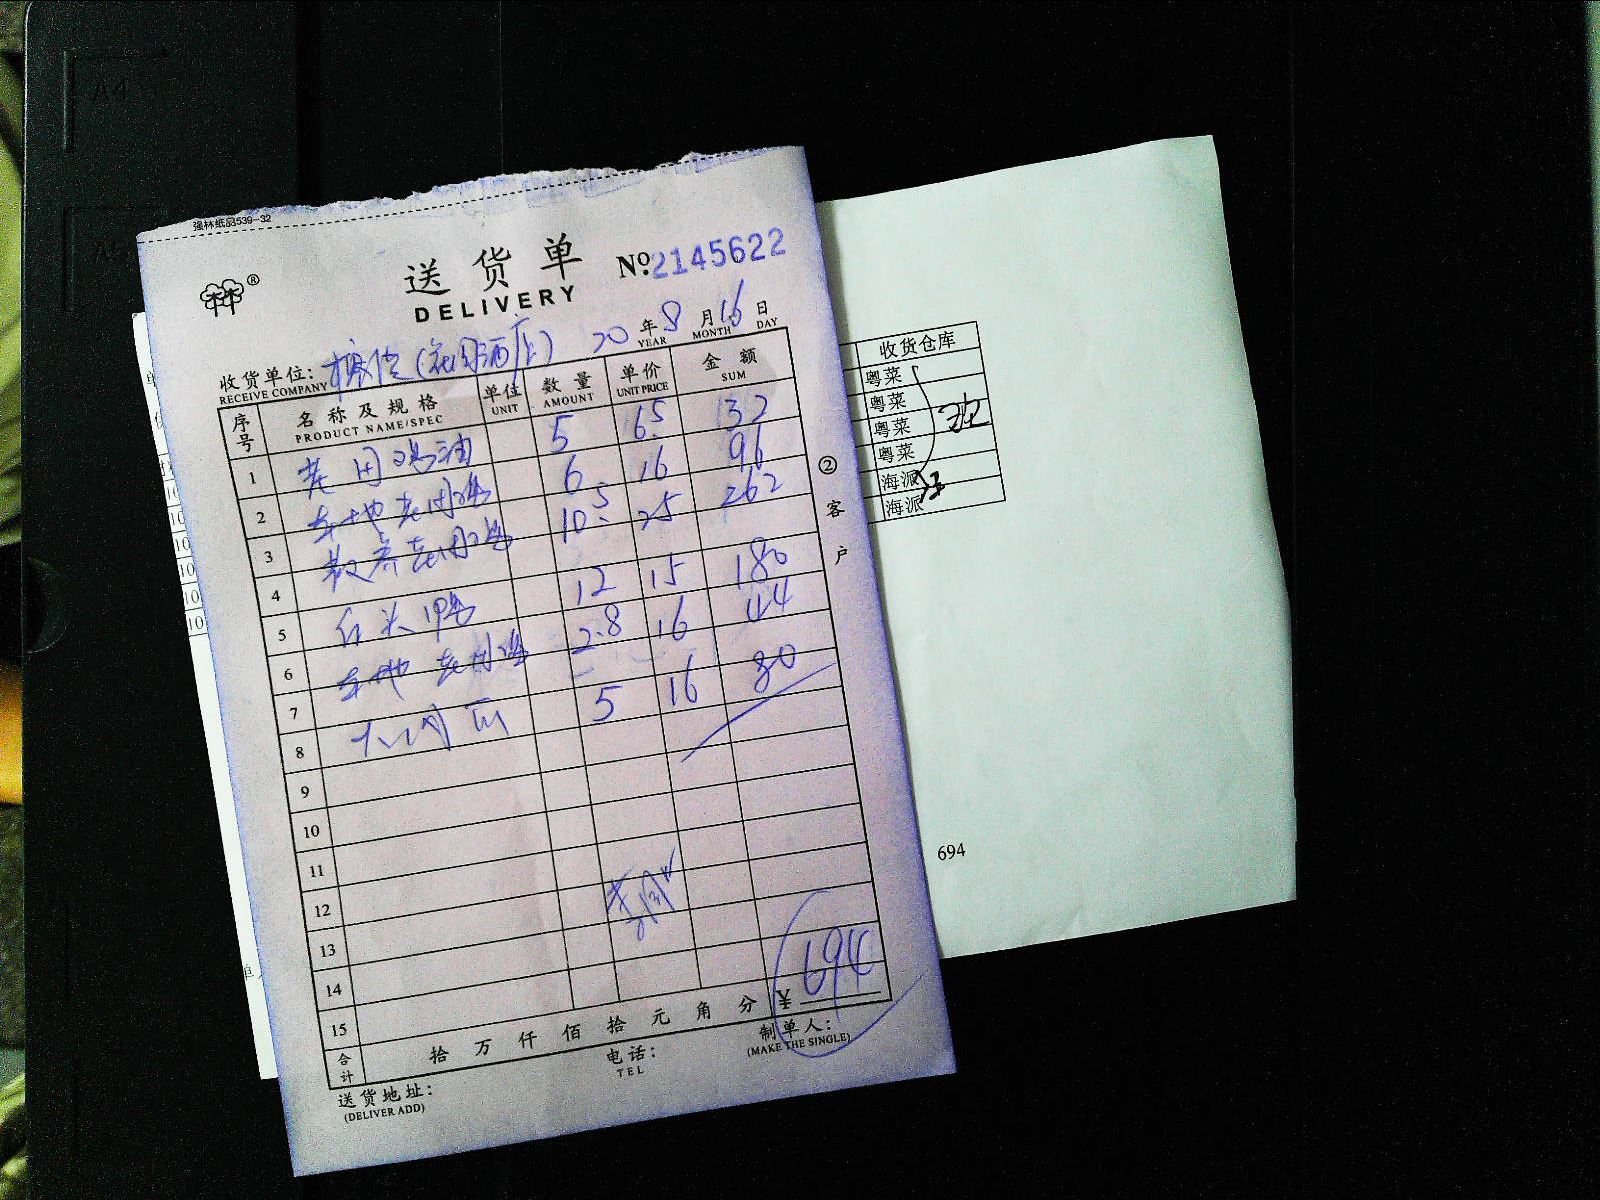 A4
A5
强林纸品539-32
送货单
DELIVERY
№ 2145622
林®
收货单位: (花园酒店) 20 年 8 月 16 日
RECEIVE COMPANY YEAR MONTH DAY
序号 名称及规格 单位 数量 单价 金额
PRODUCT NAME/SPEC UNIT AMOUNT UNIT PRICE SUM
1 油 5 6.5 32
2 本地 鸡 6 16 96
3 散养 鸡 10.5 25 262
4
5 红头鸭 12 15 180
6 本地 鸡 2.8 16 44
7
8 5 16 80
9
10
11
12
13
14
15
694
合计 拾 万 仟 佰 拾 元 角 分 ¥
送货地址: 电话: 制单人:
(DELIVER ADD) TEL (MAKE THE SINGLE)
②客户
收货仓库
粤菜
粤菜
粤菜
粤菜
海派
海派
694
10
10
10
10
10
10
单